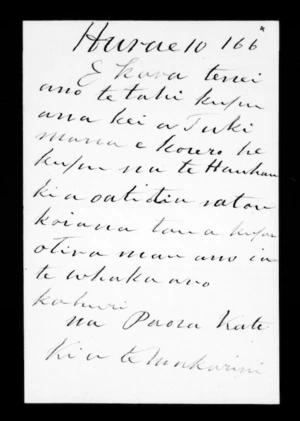 Hurae 10 166
E kara tenei
ano te tahi kupu
ana kei a Tuki
mana e korero he
kupu na te Hauhau
ki a ratou
koiana tana kupu
otira mau ano ia
te whaka ano
kahuri
na Paora Kate
Ki a te Makarini